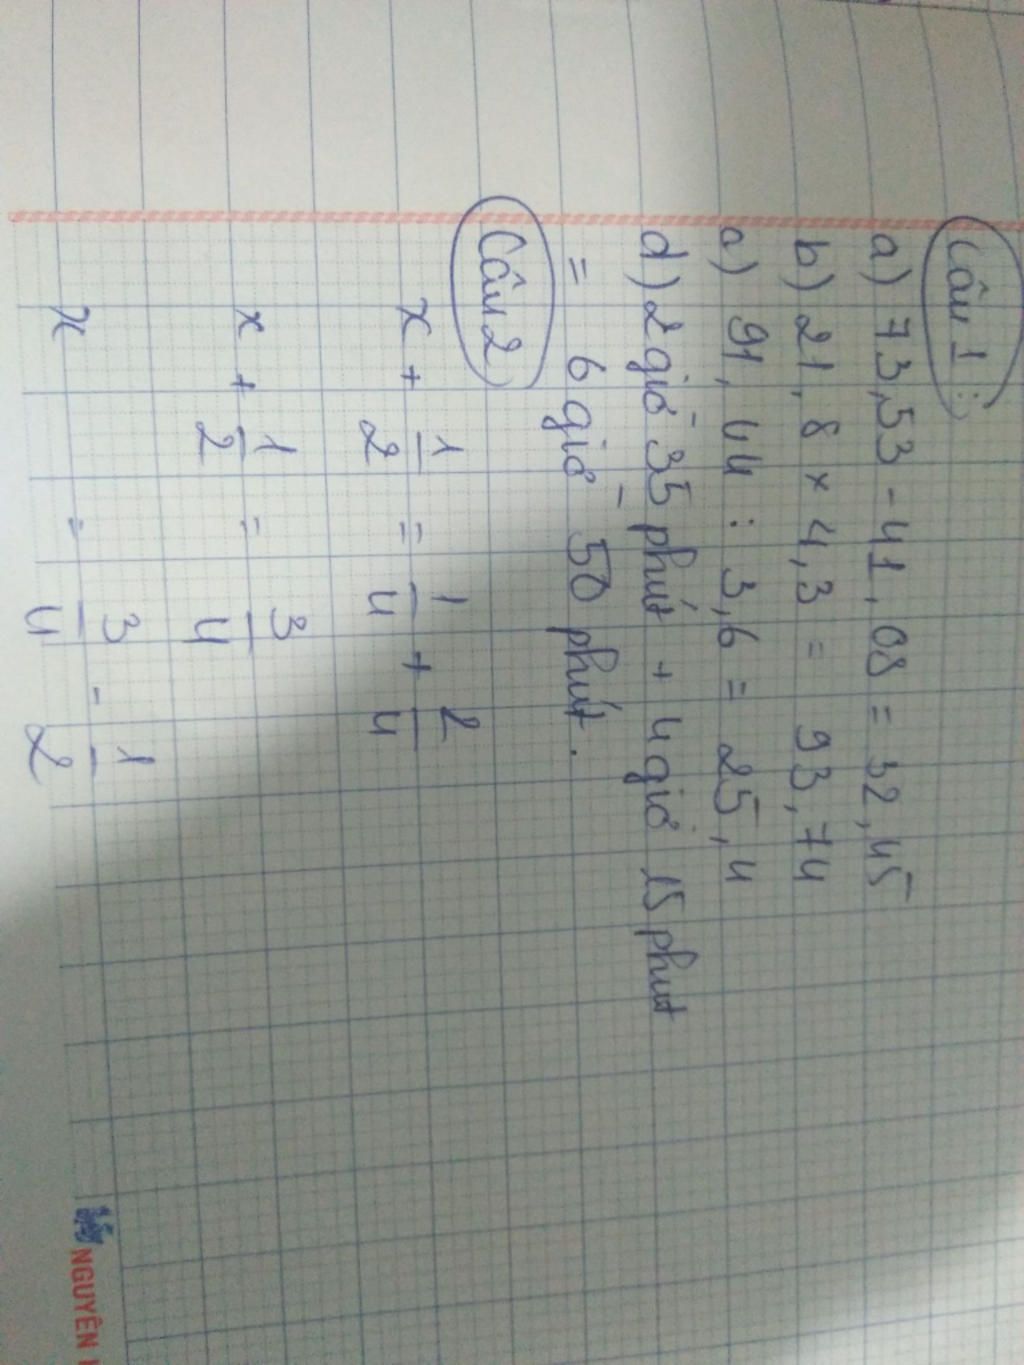 Câu 1:
a) 73,53 - 41,08 = 32,45
b) 21,8 × 4,3 = 93,74
c) 91,44 : 3,6 = 25,4
d) 2 giờ 35 phút + 4 giờ 15 phut
= 6 giờ 50 phút.
Câu 2
x + 1/2 = 1/4 + 2/4
x + 1/2 = 3/4
x = 3/4 - 1/2
NGUYÊN